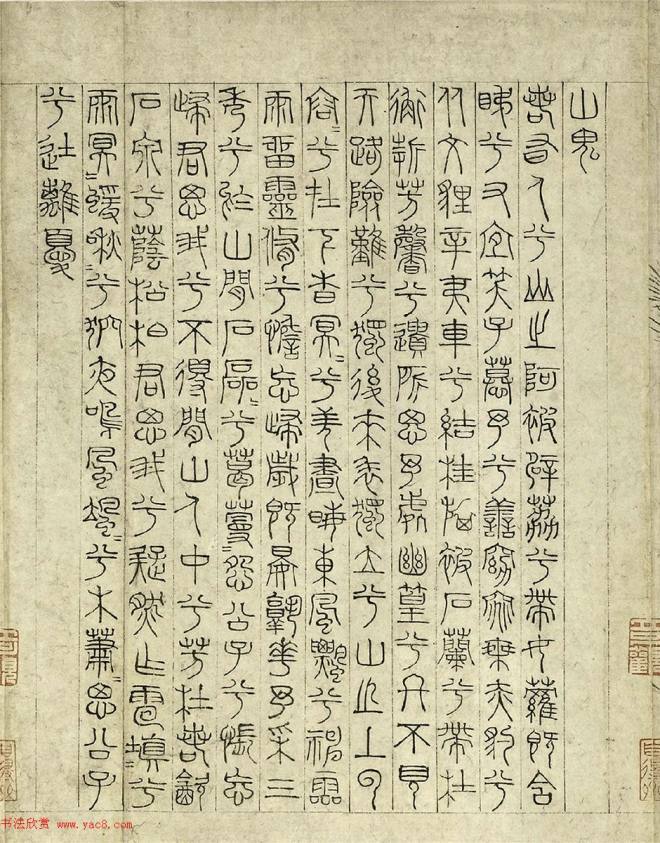 山鬼
若有人兮山之阿被薜荔兮帶女蘿既含
睇兮又宜笑子慕予兮善窈窕乘赤豹兮
从文貍辛夷車兮結桂旗被石蘭兮帶杜
衡折芳馨兮遺所思予處幽篁兮終不見
天路險難兮獨後來表獨立兮山之上雲
容〻兮在下杳冥〻兮羌晝晦東風飄兮神靈
雨留靈脩兮憺忘歸歲既晏孰華予采三
秀兮於山間石磊〻兮葛蔓〻怨公子兮悵忘
歸君思我兮不得閒山人中兮芳杜若飲
石泉兮蔭松柏君思我兮疑然作靁填〻兮
雨冥〻猨啾〻兮狖夜鳴風颯〻兮木蕭〻思公子
兮徒離憂
书法欣赏 www.yac8.com